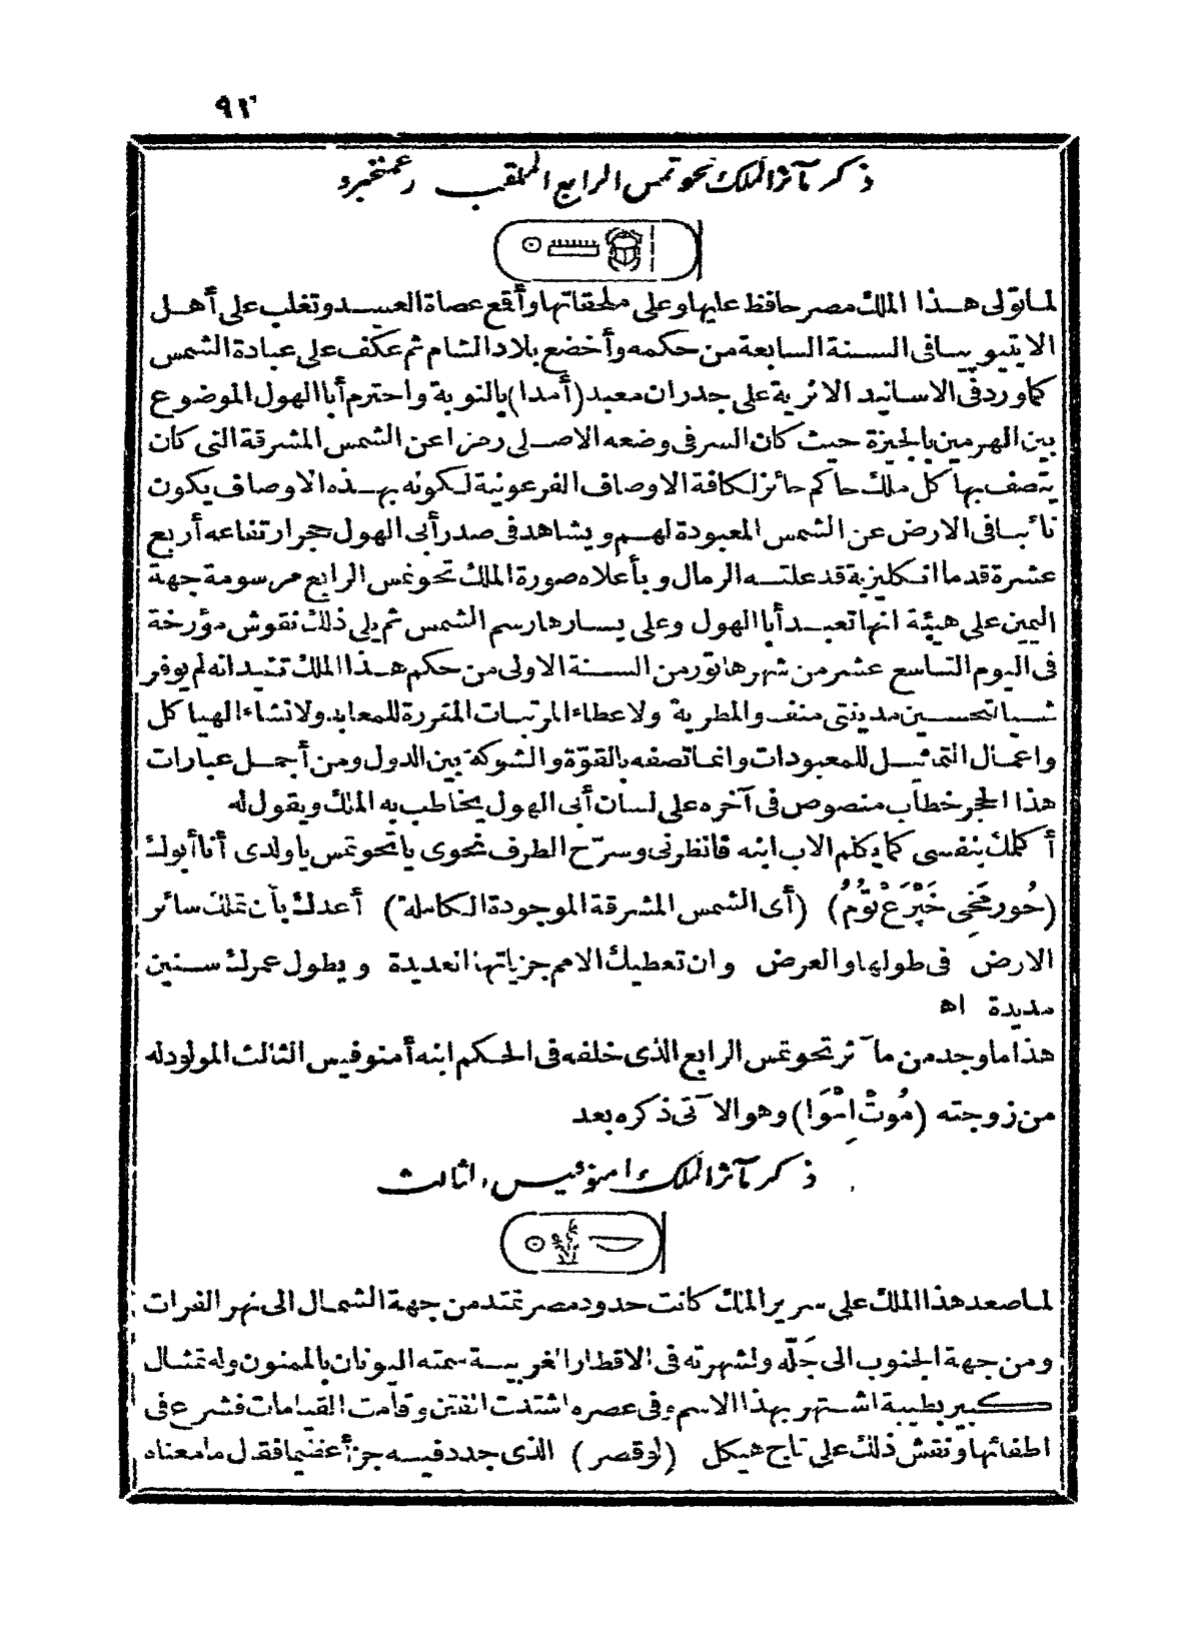 ٩٢
ذكر مآثر الملك تحوتمس الرابع الملقب رعمنخبرو
لما تولى هذا الملك مصر حافظ عليها وعلى ملحقاتها وأقمع عصاة العبيد وتغلب على أهل
الايتيوبيا فى السنة السابعة من حكمه وأخضع بلاد الشام ثم عكف على عبادة الشمس
كما ورد فى الاسانيد الاثرية على جدران معبد (أمدا) بالنوبة واحترم أبا الهول الموضوع
بين الهرمين بالجيزة حيث كان السر فى وضعه الاصلى رمزا عن الشمس المشرقة التى كان
يتصف بها كل ملك حاكم حائز لكافة الاوصاف الفرعونية لكونه بهذه الاوصاف يكون
نائبا فى الارض عن الشمس المعبودة لهم ويشاهد فى صدر أبى الهول حجر ارتفاعه أربع
عشرة قدما انكليزية قد علته الرمال وبأعلاه صورة الملك تحوتمس الرابع مرسومة جهة
اليمين على هيئة انها تعبد أبا الهول وعلى يسارها رسم الشمس ثم يلى ذلك نقوش مؤرخة
فى اليوم التاسع عشر من شهر هاتور من السنة الاولى من حكم هذا الملك تفيد انه لم يوفر
شيا لتحسين مدينتى منف والمطرية ولا عطاء المرتبات المقررة للمعابد ولا نشاء الهياكل
واعمال التماثيل للمعبودات وانما تصفه بالقوّة والشوكة بين الدول ومن أجمل عبارات
هذا الحجر خطاب منصوص فى آخره على لسان أبى الهول يخاطب به الملك ويقول له
أكلمك بنفسى كما يكلم الاب ابنه فانظرنى وسرّح الطرف نحوى يا تحوتمس يا ولدى أنا أبوك
(حُور مَخِى خَپْرَعْ تُومُ) (أى الشمس المشرقة الموجودة الكاملة) أعدك بأن تملك سائر
الارض فى طولها والعرض وان تعطيك الامم جزياتها العديدة ويطول عمرك سنين
مديدة اه
هذا ما وجد من مآثر تحوتمس الرابع الذى خلفه فى الحكم ابنه أمنوفيس الثالث المولود له
من زوجته (مُوتْ اِمْوَا) وهو الآتى ذكره بعد
ذكر مآثر الملك امنوفيس الثالث
لما صعد هذا الملك على سرير الملك كانت حدود مصر تمتد من جهة الشمال الى نهر الفرات
ومن جهة الجنوب الى جَلّه ولشهرته فى الاقطار الغربية سمته اليونان بالممنون وله تمثال
كبير بطيبة اشتهر بهذا الاسم وفى عصره اشتدت الفتن وقامت القيامات فشرع فى
اطفائها ونقش ذلك على تاج هيكل (لوقصر) الذى جدد فيه جزأ عظيما فقال ما معناه